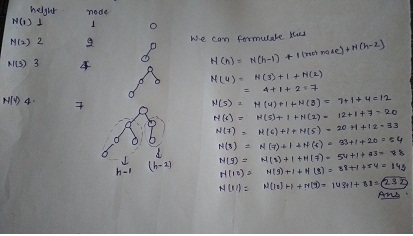 height node
N(1) 1 1
N(2) 2 2
N(3) 3 4
N(4) 4 7
h-1 (h-2)
We can formulate this
N(h) = N(h-1) + 1 (root node) + N(h-2)
N(4) = N(3) + 1 + N(2)
= 4 + 1 + 2 = 7
N(5) = N(4) + 1 + N(3) = 7 + 1 + 4 = 12
N(6) = N(5) + 1 + N(4) = 12 + 1 + 7 = 20
N(7) = N(6) + 1 + N(5) = 20 + 1 + 12 = 33
N(8) = N(7) + 1 + N(6) = 33 + 1 + 20 = 54
N(9) = N(8) + 1 + N(7) = 54 + 1 + 33 = 88
N(10) = N(9) + 1 + N(8) = 88 + 1 + 54 = 143
N(11) = N(10) + 1 + N(9) = 143 + 1 + 88 = 232
Ans